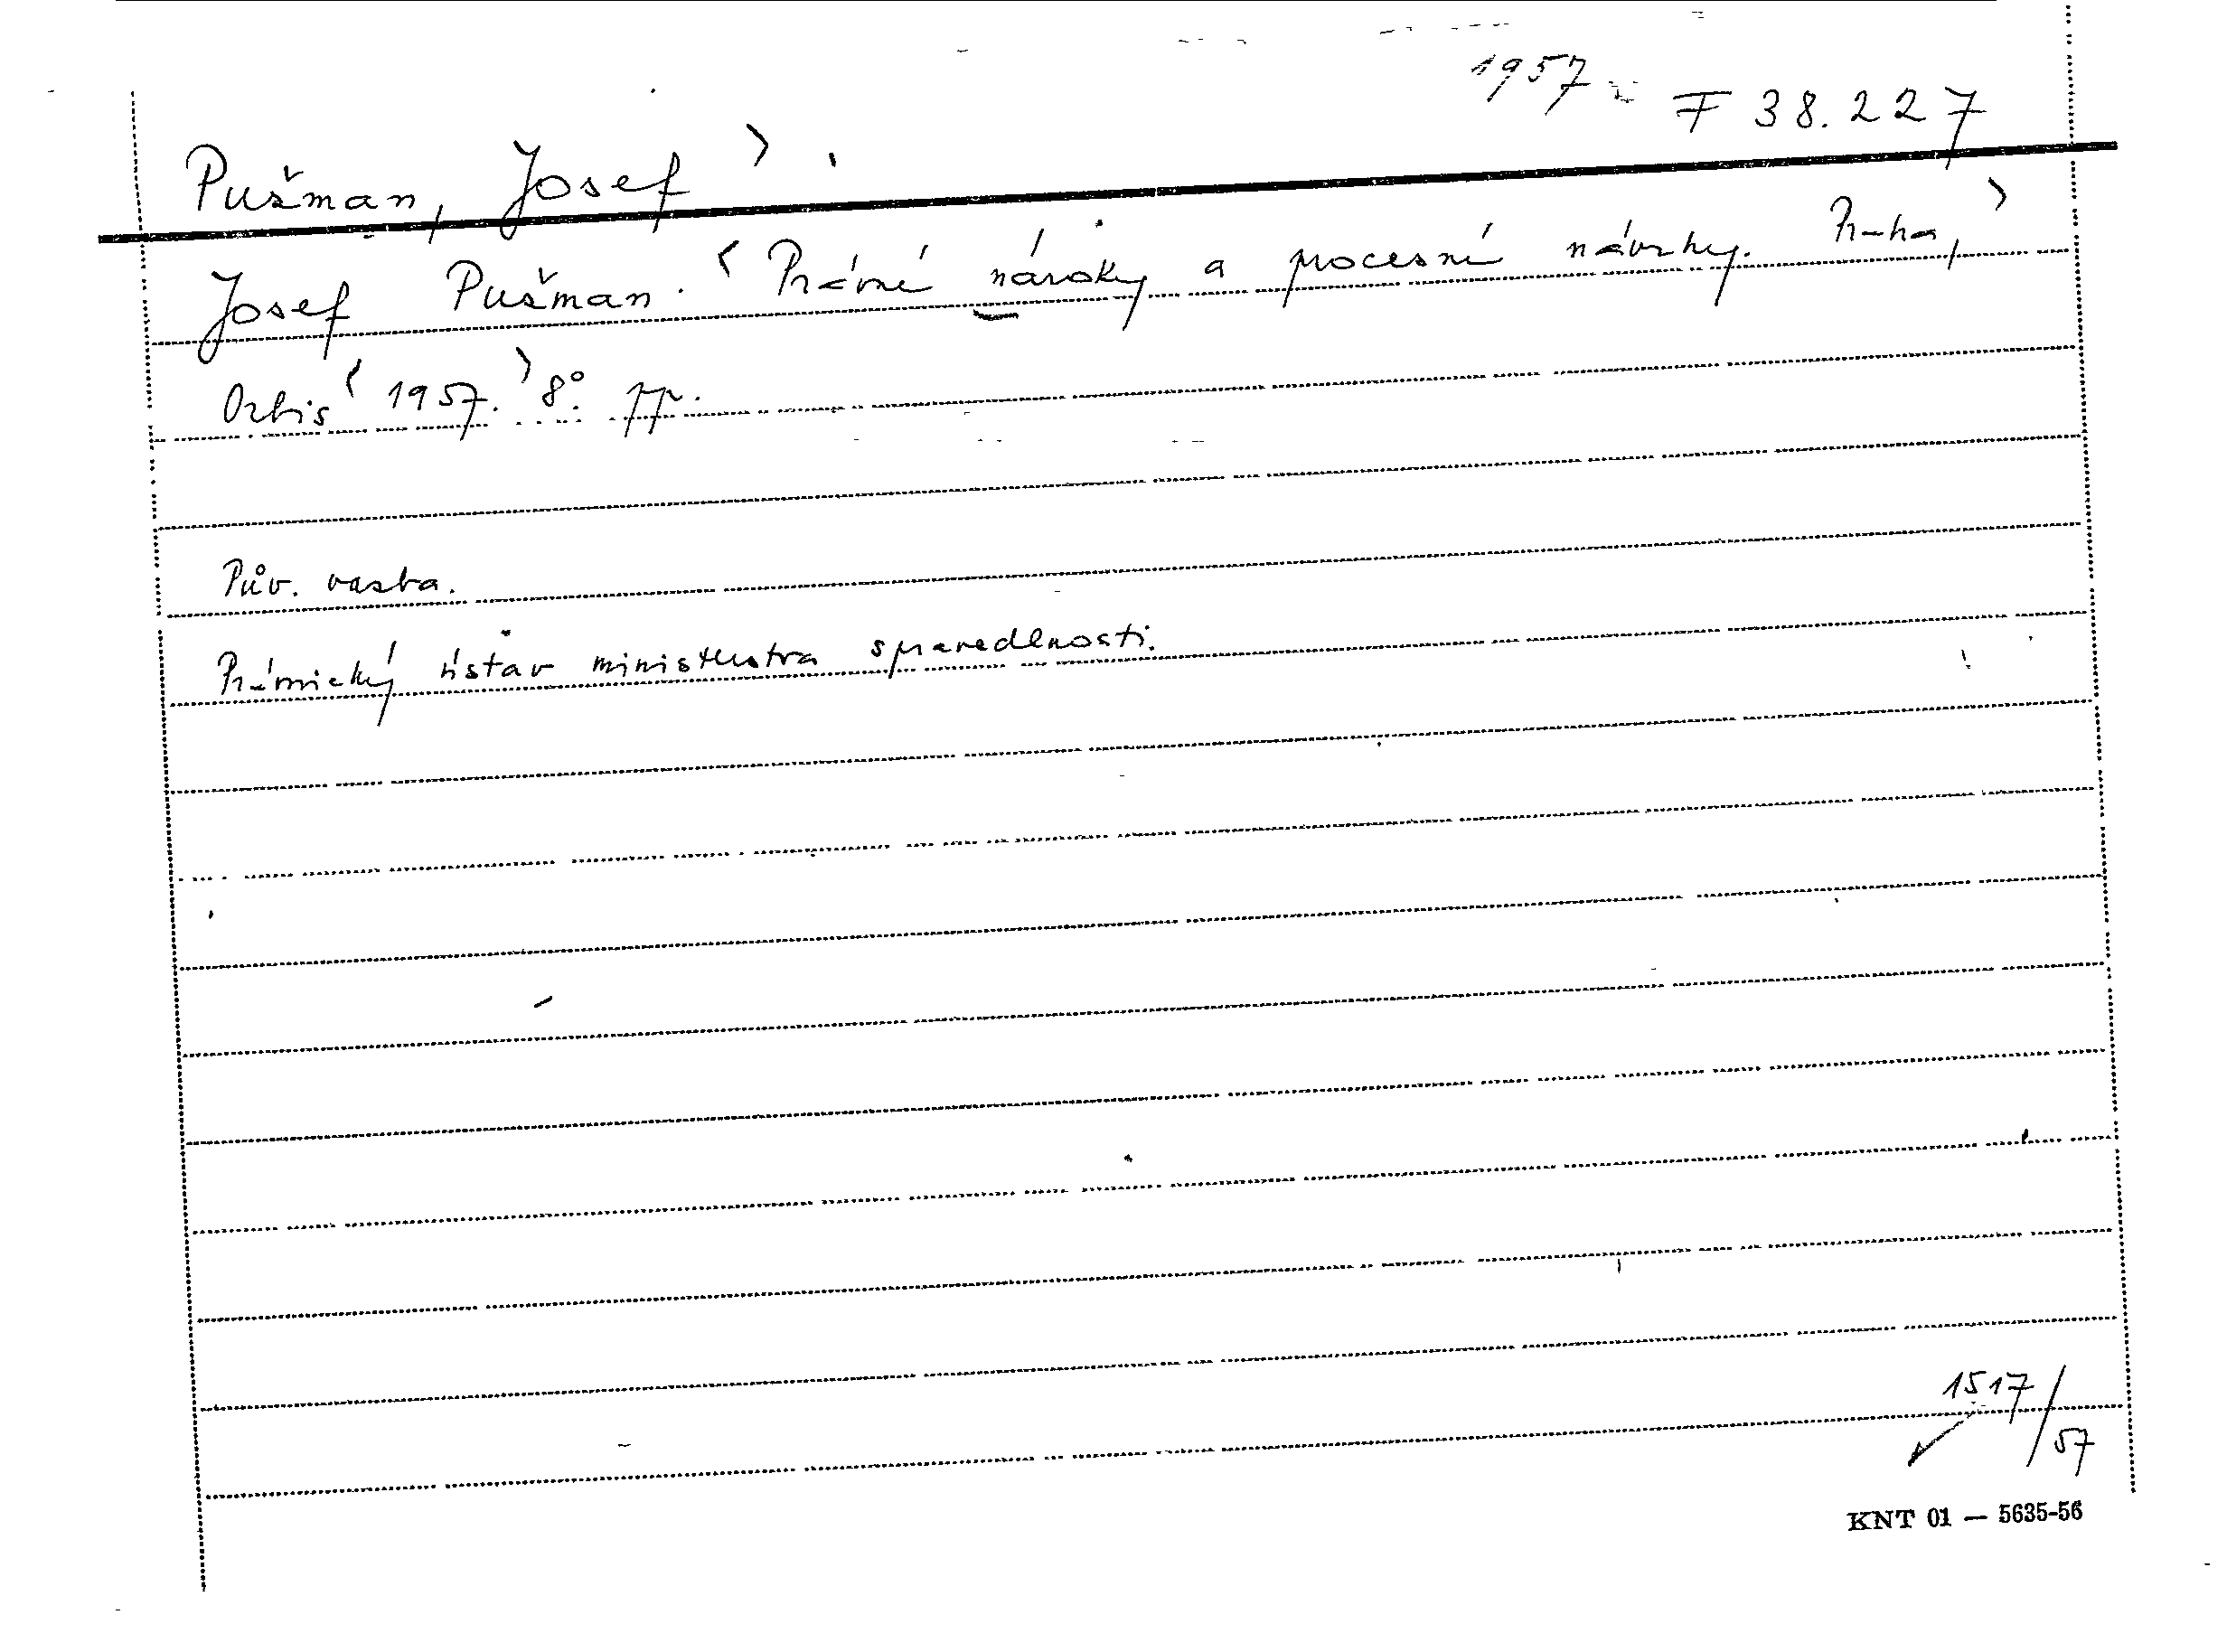 1957
F 38.227
Pušman, Josef
Josef Pušman. Právní nároky a procesní návrhy. Praha,
Orbis 1957. 8°. pp.
Pův. vazba.
Právnický ústav ministerstva spravedlnosti.
1517/57
KNT 01 — 5635-56